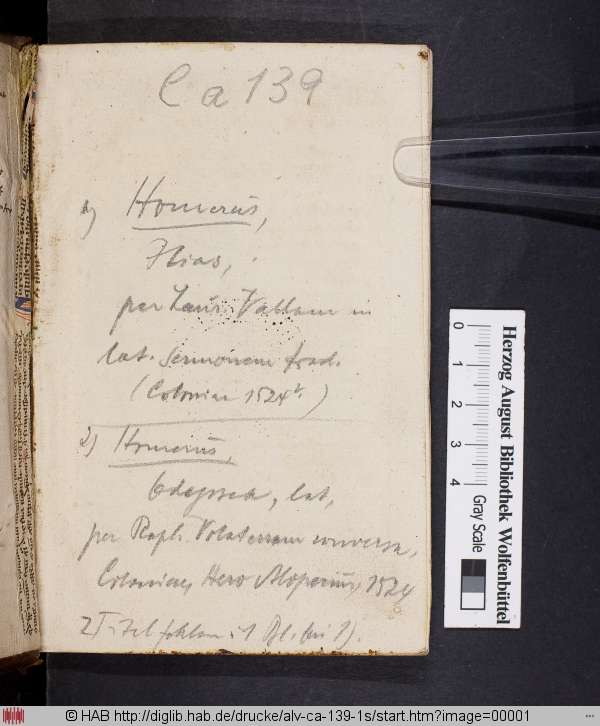 Ca 139
1) Homerus,
Ilias,
per Laur. Vallam in
lat. sermonem trad.
(Coloniae 1524)
2) Homerus,
Odyssea, lat,
per Raph. Volaterram conversa,
Coloniae, Hero Alopecius, 1524
2 Titel fehlen
0
1
2
3
4
Gray Scale
Herzog August Bibliothek Wolfenbüttel
© HAB http://diglib.hab.de/drucke/alv-ca-139-1s/start.htm?image=00001